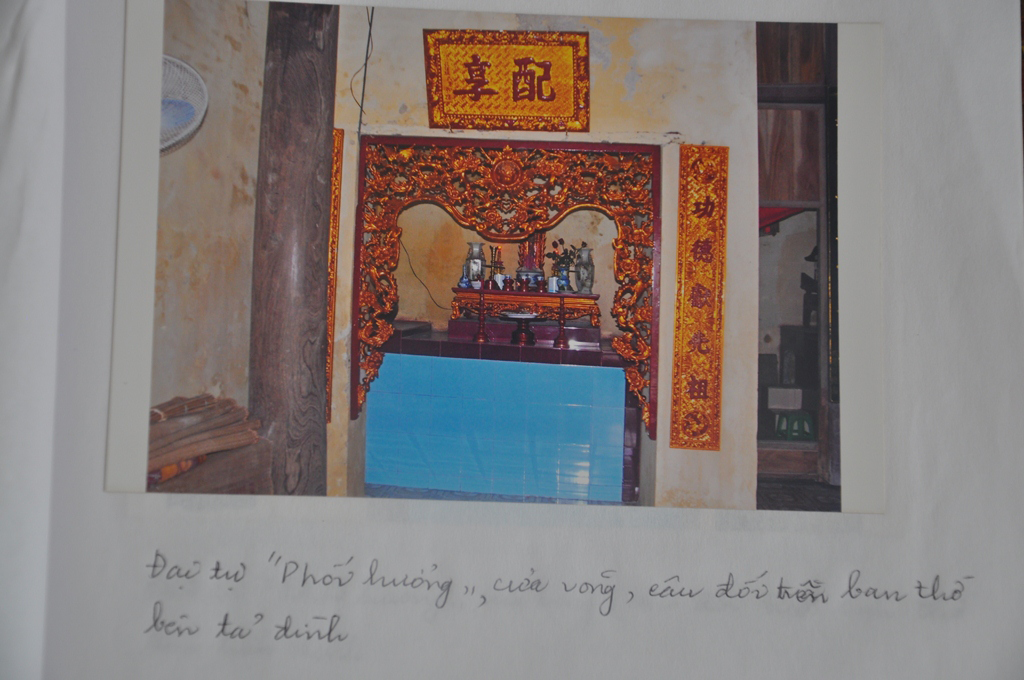 配享
功德先祖
Đại tự "Phối hưởng", cửa võng, câu đối trên ban thờ
bên tả đình